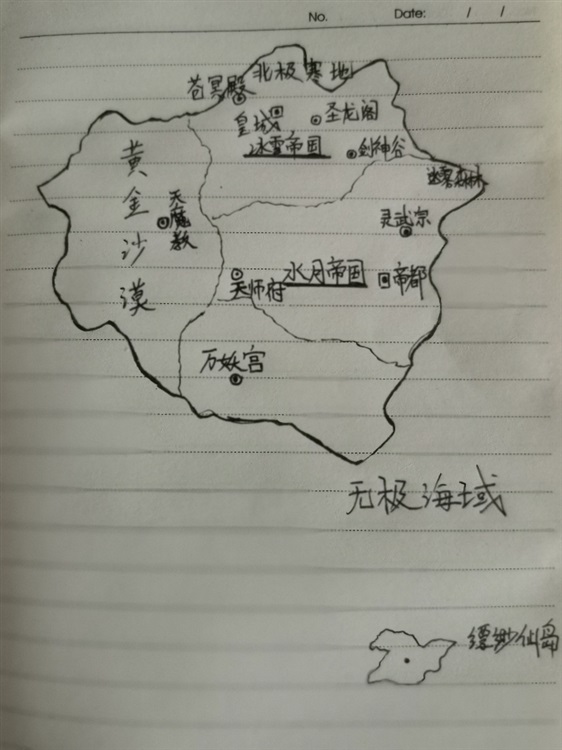 No.
Date: / /
北极寒地
苍冥殿
皇城
圣龙阁
冰雪帝国
剑神谷
黄金沙漠
天魔教
灵武宗
水月帝国
帝都
天师府
万妖宫
无极海域
缥缈仙岛